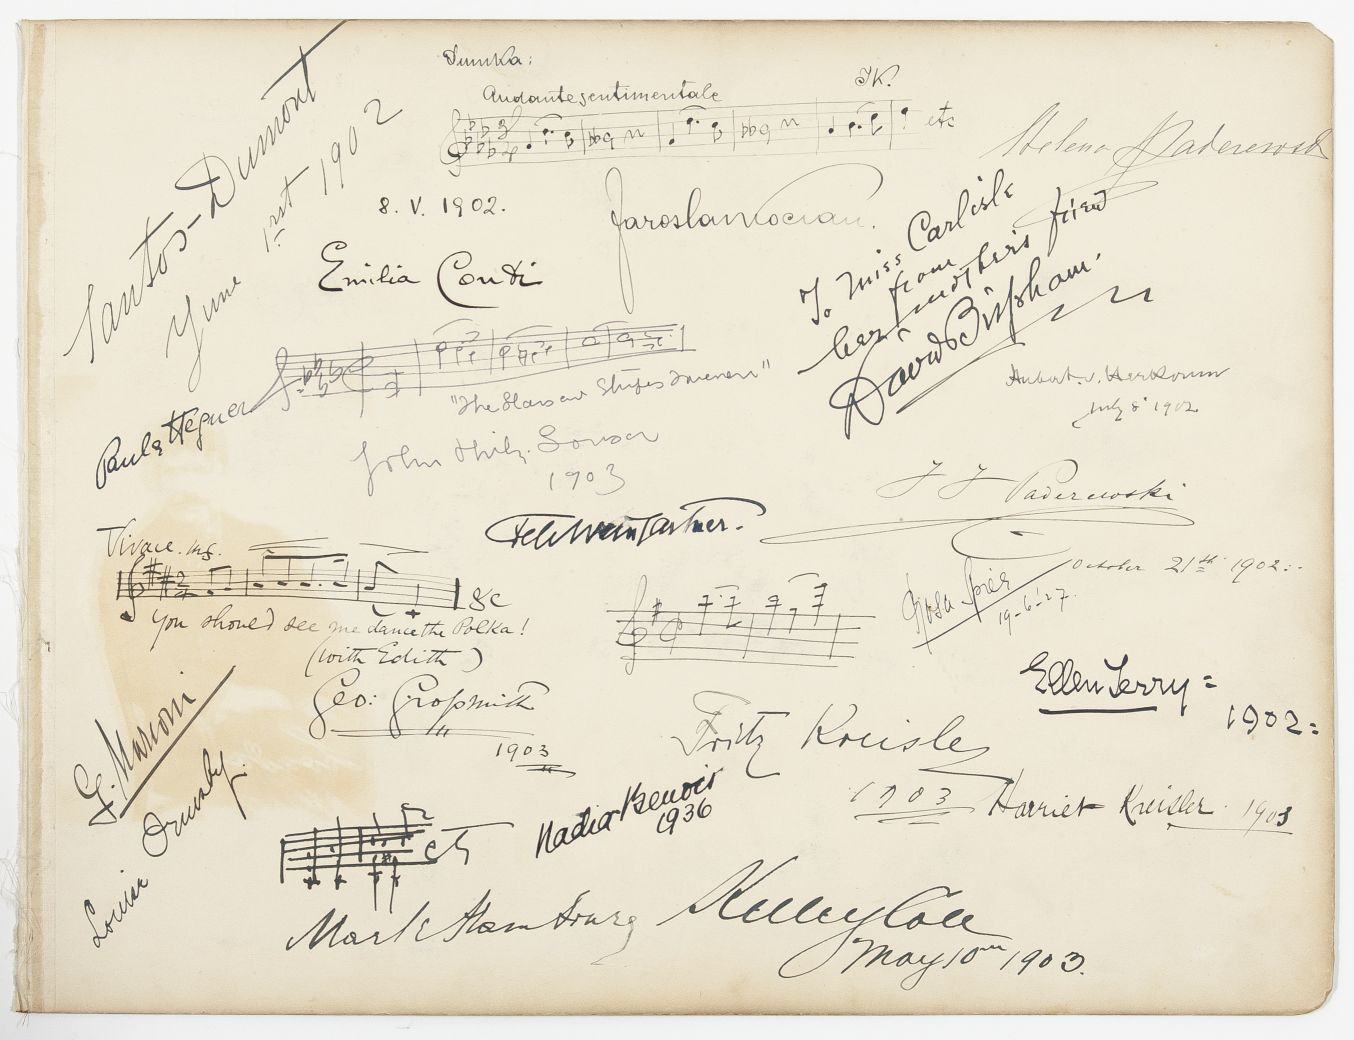 Dumka:
Andante sentimentale
JK.
etc
Santos-Dumont
June 1rst 1902
Helena Paderewski
8. V. 1902.
Jaroslav Kocian.
Emilia Conti
To Miss Carlisle
from
her mothers friend
David Bispham.
"The Stars and Stripes Forever"
John Philip Sousa
1903
Paula Hegner
Hubert. v. Herkomer
July 8 1902
I J Paderewski
October 21st 1902:-
Felix Weingartner.
Vivace. mf.
&c
You should see me dance the Polka!
(with Edith)
Geo: Grossmith
1903
19-6-27.
Ellen Terry =
1902=
G. Marconi
Louise Ormsby.
Fritz Kreisler
1903
Harriet Kreisler. 1903
Nadia Benois
1936
Mark Hambourg
Kelley Cole
May 10th 1903.